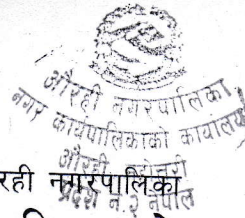 औरही नगरपालिका
नगर कार्यपालिकाको कार्यालय
औरही, महोत्तरी
प्रदेश नं. २ नेपाल
रही नगरपालिका